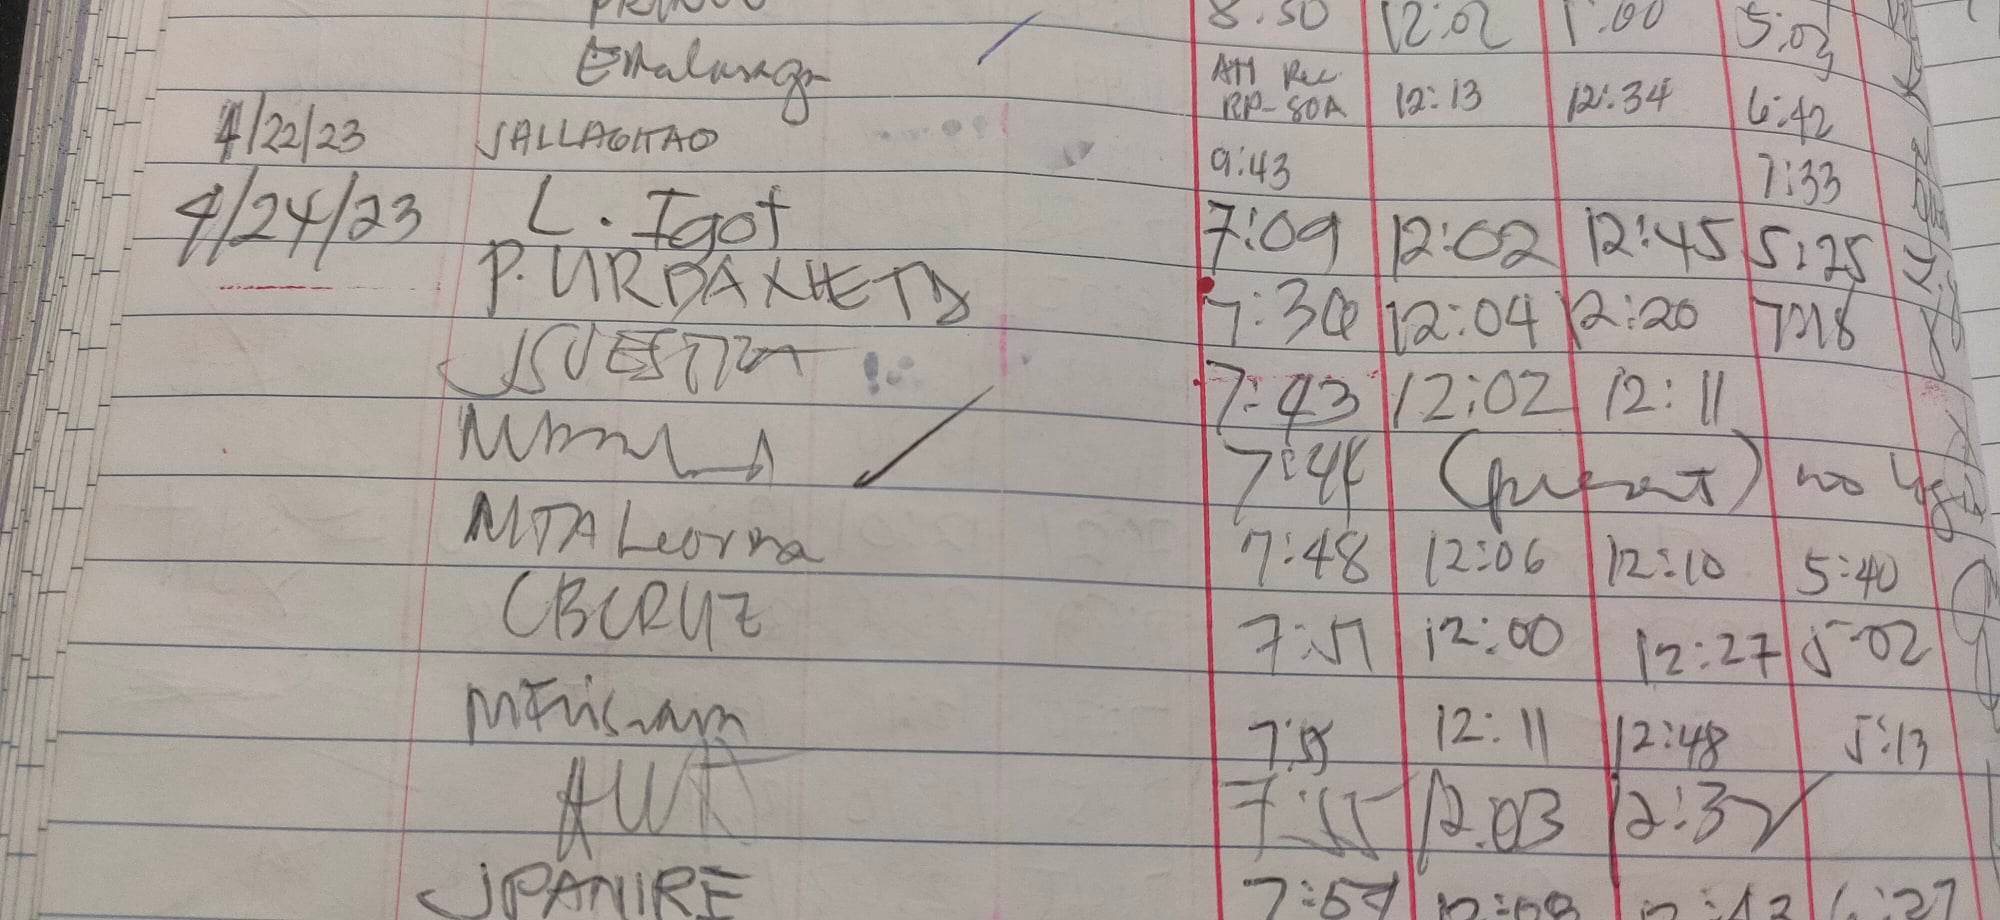 8:50 12:02 1:00 5:03
Emalanga ATI Rec. RP-SOA 12:13 12:34 6:42
4/22/23 JALLAGITAO 9:43 7:33
4/24/23 L. Igot 7:09 12:02 12:45 5:25
P. URDANETA 7:30 12:04 12:20 7:18
7:43 12:02 12:11
7:44 (present) no
MTA Leorna 7:48 12:06 12:10 5:40
CBCRUZ 7:51 12:00 12:27 5:02
7:55 12:11 12:48 5:13
7:55 12:03 12:32
JPANIRE 7:57 12:08 12:43 6:27